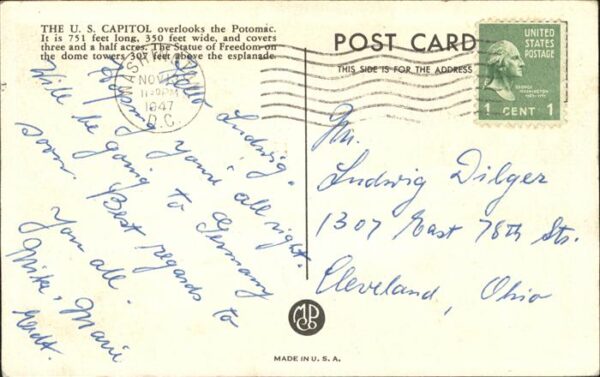 THE U. S. CAPITOL overlooks the Potomac.
It is 751 feet long, 350 feet wide, and covers
three and a half acres. The Statue of Freedom on
the dome towers 307 feet above the esplanade
WASHINGTON
NOV 10
11-PM
1947
D.C.
Hello Ludwig,
Hoping you're all right.
Will be going to Germany
soon. Best regards to
you all.
Mike, Marie
POST CARD
THIS SIDE IS FOR THE ADDRESS
UNITED
STATES
POSTAGE
GEORGE
WASHINGTON
1 CENT 1
Mr.
Ludwig Dilger
1307 East 78th Str.
Cleveland, Ohio
MADE IN U. S. A.